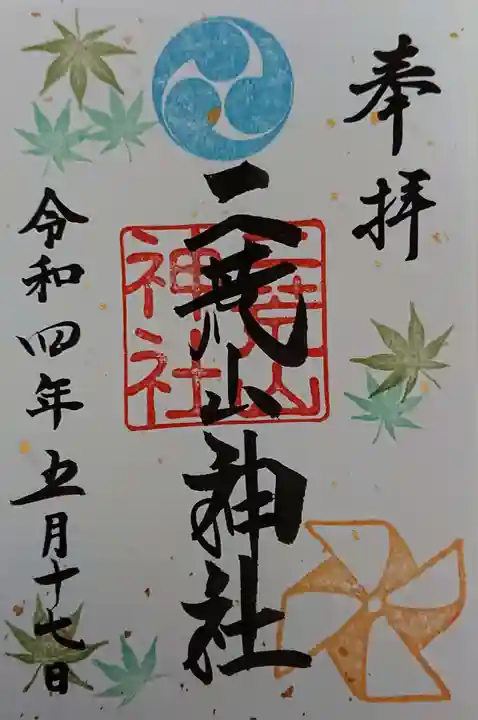 奉拝
二荒山神社
二荒山
神社
令和四年五月十七日